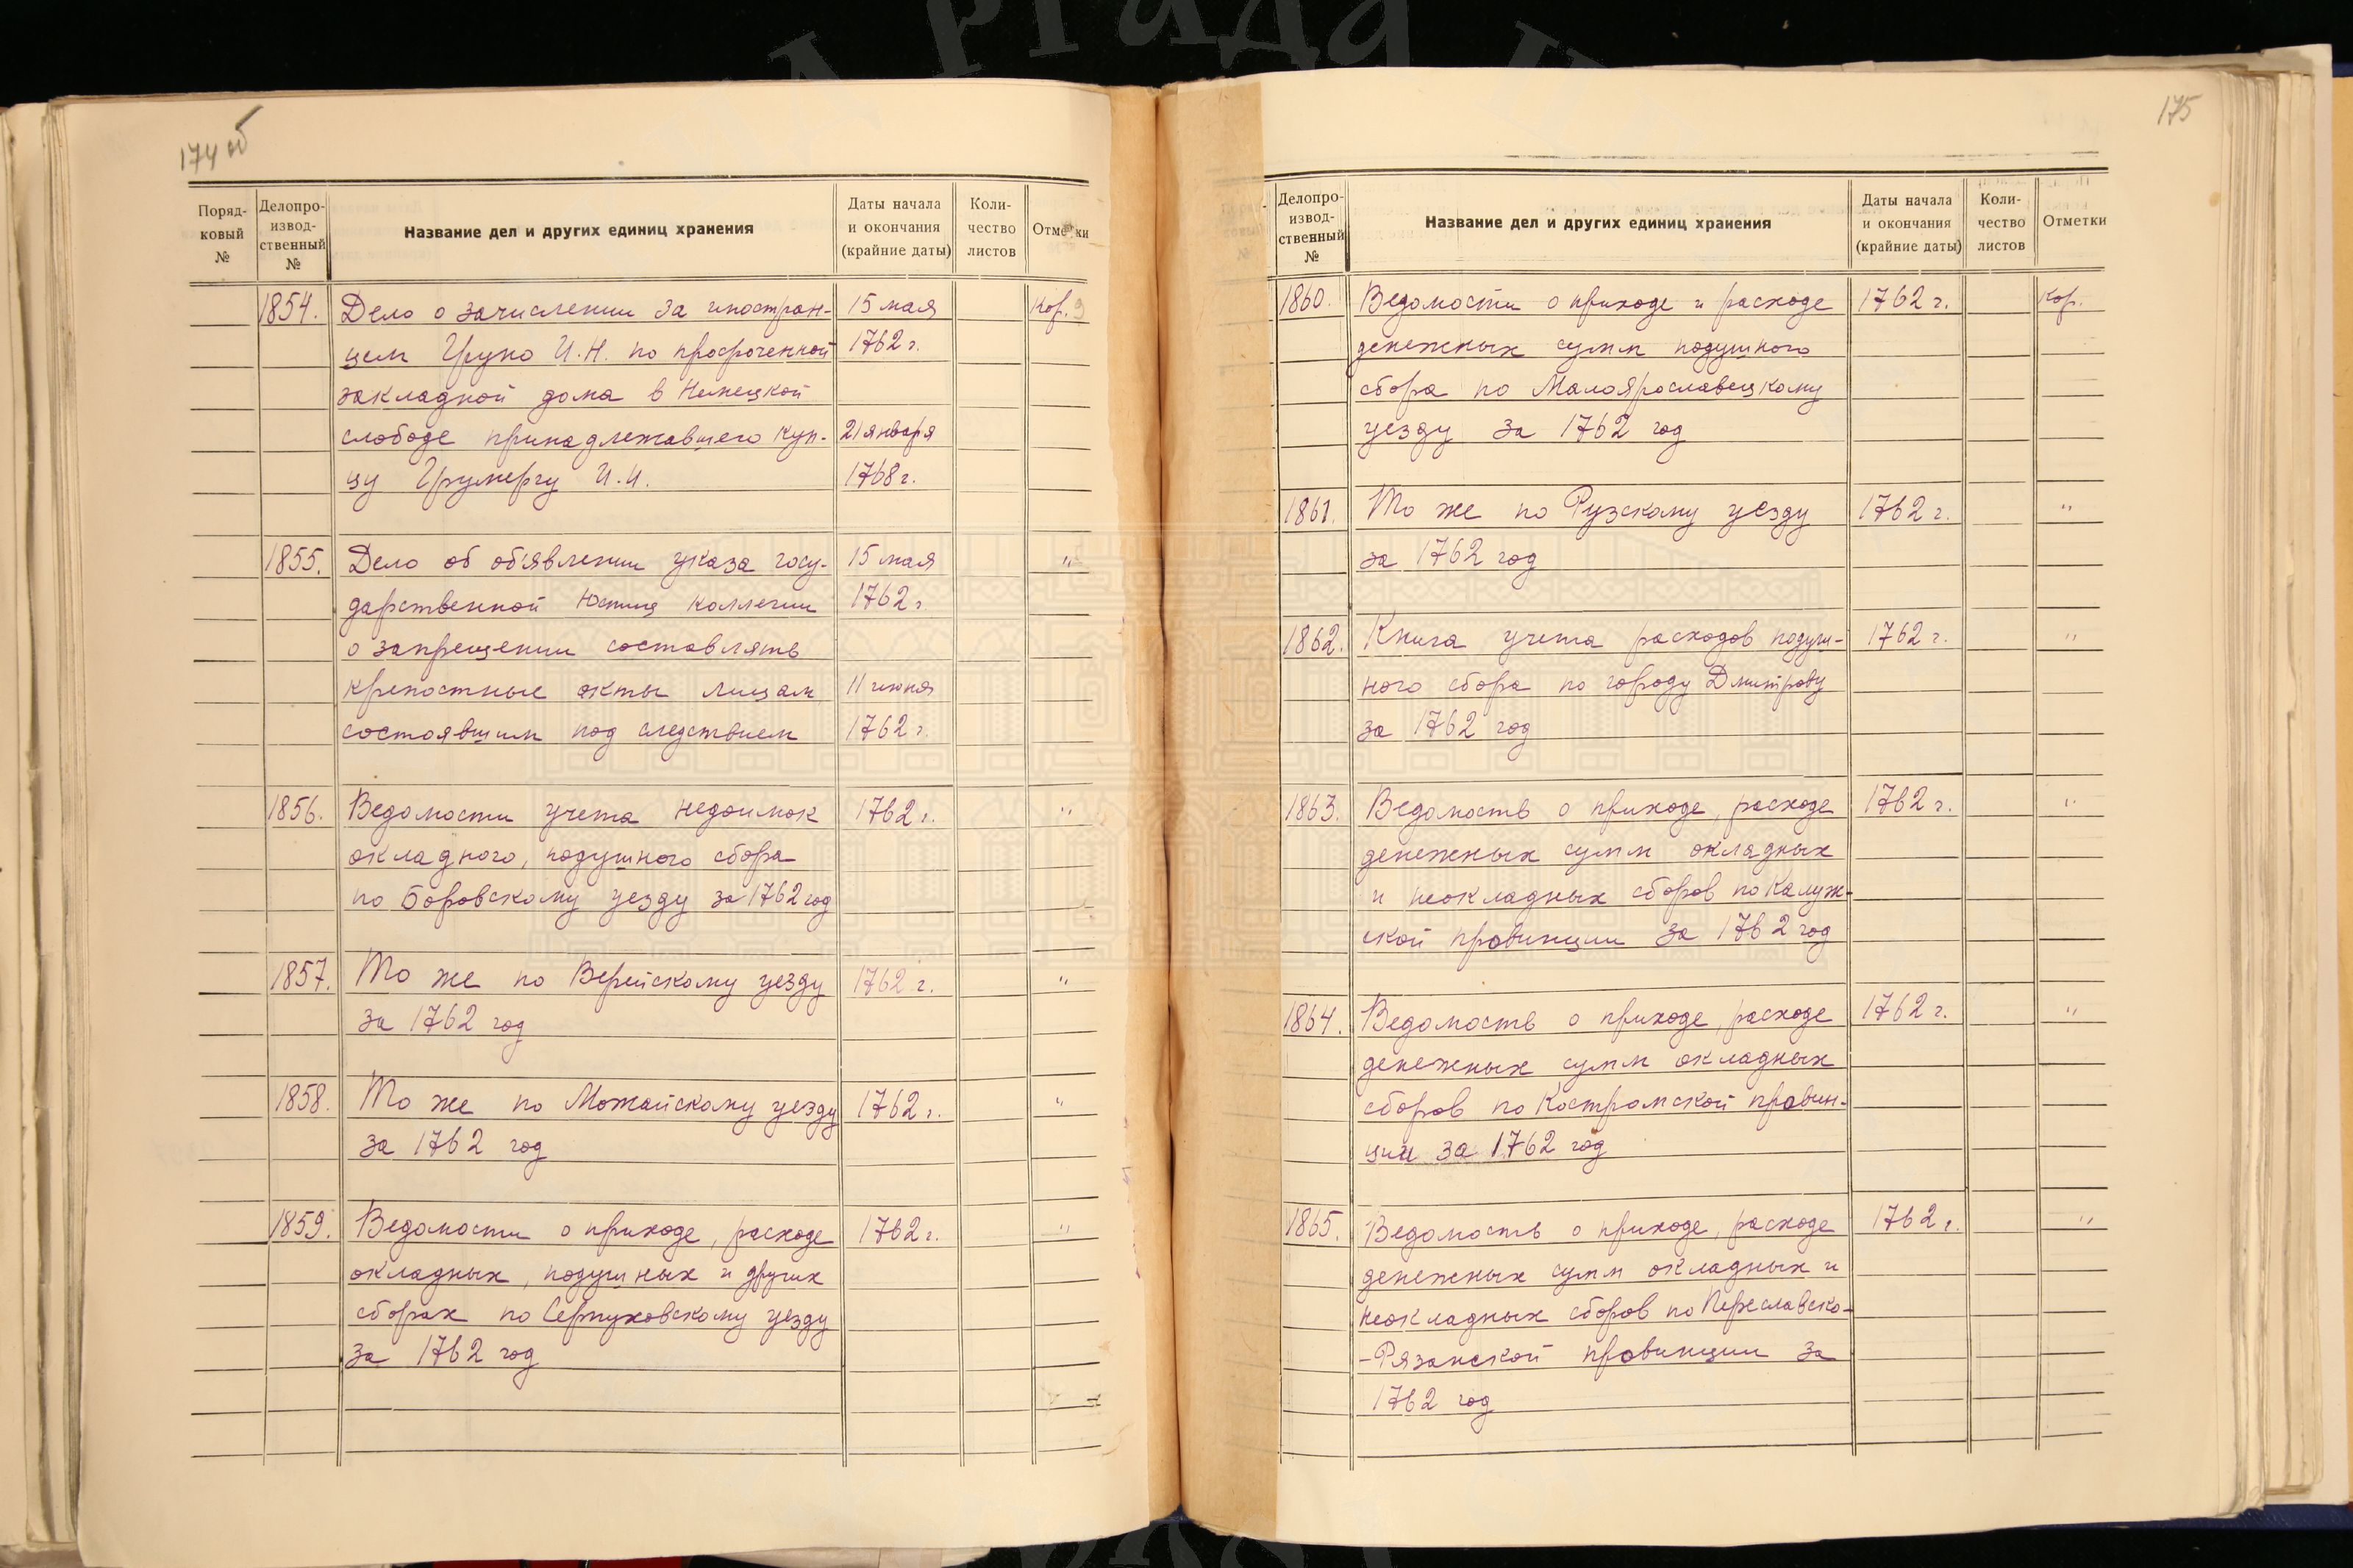 174 об
Поряд-
ковый
№
Делопро-
извод-
ственный
№
Название дел и других единиц хранения
Даты начала
и окончания
(крайние даты)
Коли-
чество
листов
Отметки
1854. Дело о зачислении за иностран- 15 мая Кор.
цем Груно И.Н. по просроченной 1762 г.
закладной дома в Немецкой
слободе принадлежавшего куп- 21 января
цу И.И. 1768 г.
1855. Дело об объявлении указа госу- 15 мая "
дарственной Юстиц коллегии 1762 г.
о запрещении составлять
крепостные акты лицам 11 июня
состоявшим под следствием 1762 г.
1856. Ведомости учета недоимок 1762 г. "
окладного, подушного сбора
по Боровскому уезду за 1762 год
1857. То же по Верейскому уезду 1762 г. "
за 1762 год
1858. То же по Можайскому уезду 1762 г. "
за 1762 год
1859. Ведомости о приходе, расходе 1762 г. "
окладных, подушных и других
сборах по Серпуховскому уезду
за 1762 год
175
Делопро-
извод-
ственный
№
Название дел и других единиц хранения
Даты начала
и окончания
(крайние даты)
Коли-
чество
листов
Отметки
1860. Ведомости о приходе и расходе 1762 г. Кор.
денежных сумм подушного
сбора по Малоярославецкому
уезду за 1762 год
1861. То же по Рузскому уезду 1762 г. "
за 1762 год
1862. Книга учета расходов подуш- 1762 г. "
ного сбора по городу Дмитрову
за 1762 год
1863. Ведомость о приходе, расходе 1762 г. "
денежных сумм окладных
и неокладных сборов по Калуж-
ской провинции за 1762 год
1864. Ведомость о приходе, расходе 1762 г. "
денежных сумм окладных
сборов по Костромской провин-
ции за 1762 год
1865. Ведомость о приходе, расходе 1762 г. "
денежных сумм окладных и
неокладных сборов по Переславско-
-Рязанской провинции за
1762 год